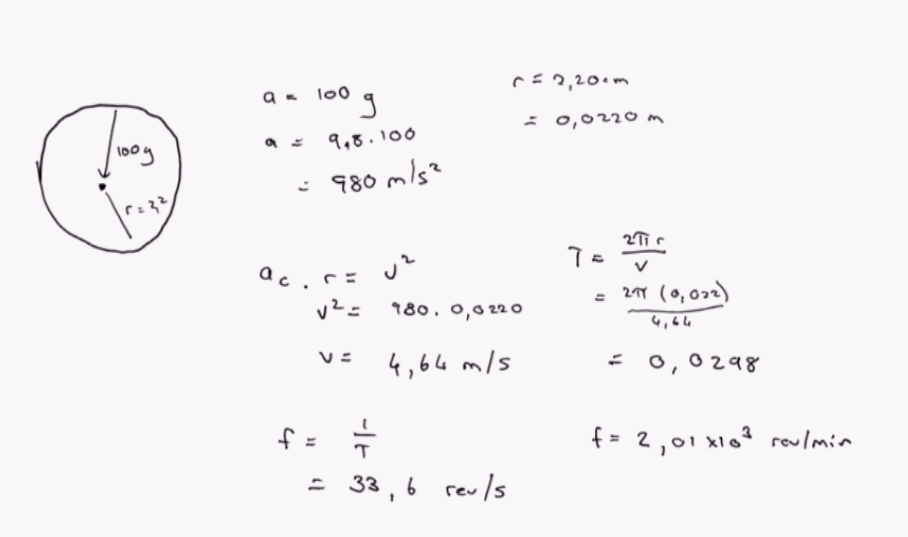 100g
r = 2,2
a = 100 g
a = 9,8 . 100
= 980 m/s²
r = 2,20 cm
= 0,0220 m
a_c . r = v²
v² = 980 . 0,0220
v = 4,64 m/s
T = 2πr / v
= 2π (0,022) / 4,64
= 0,0298
f = 1 / T
= 33,6 rev/s
f = 2,01 x10³ rev/min